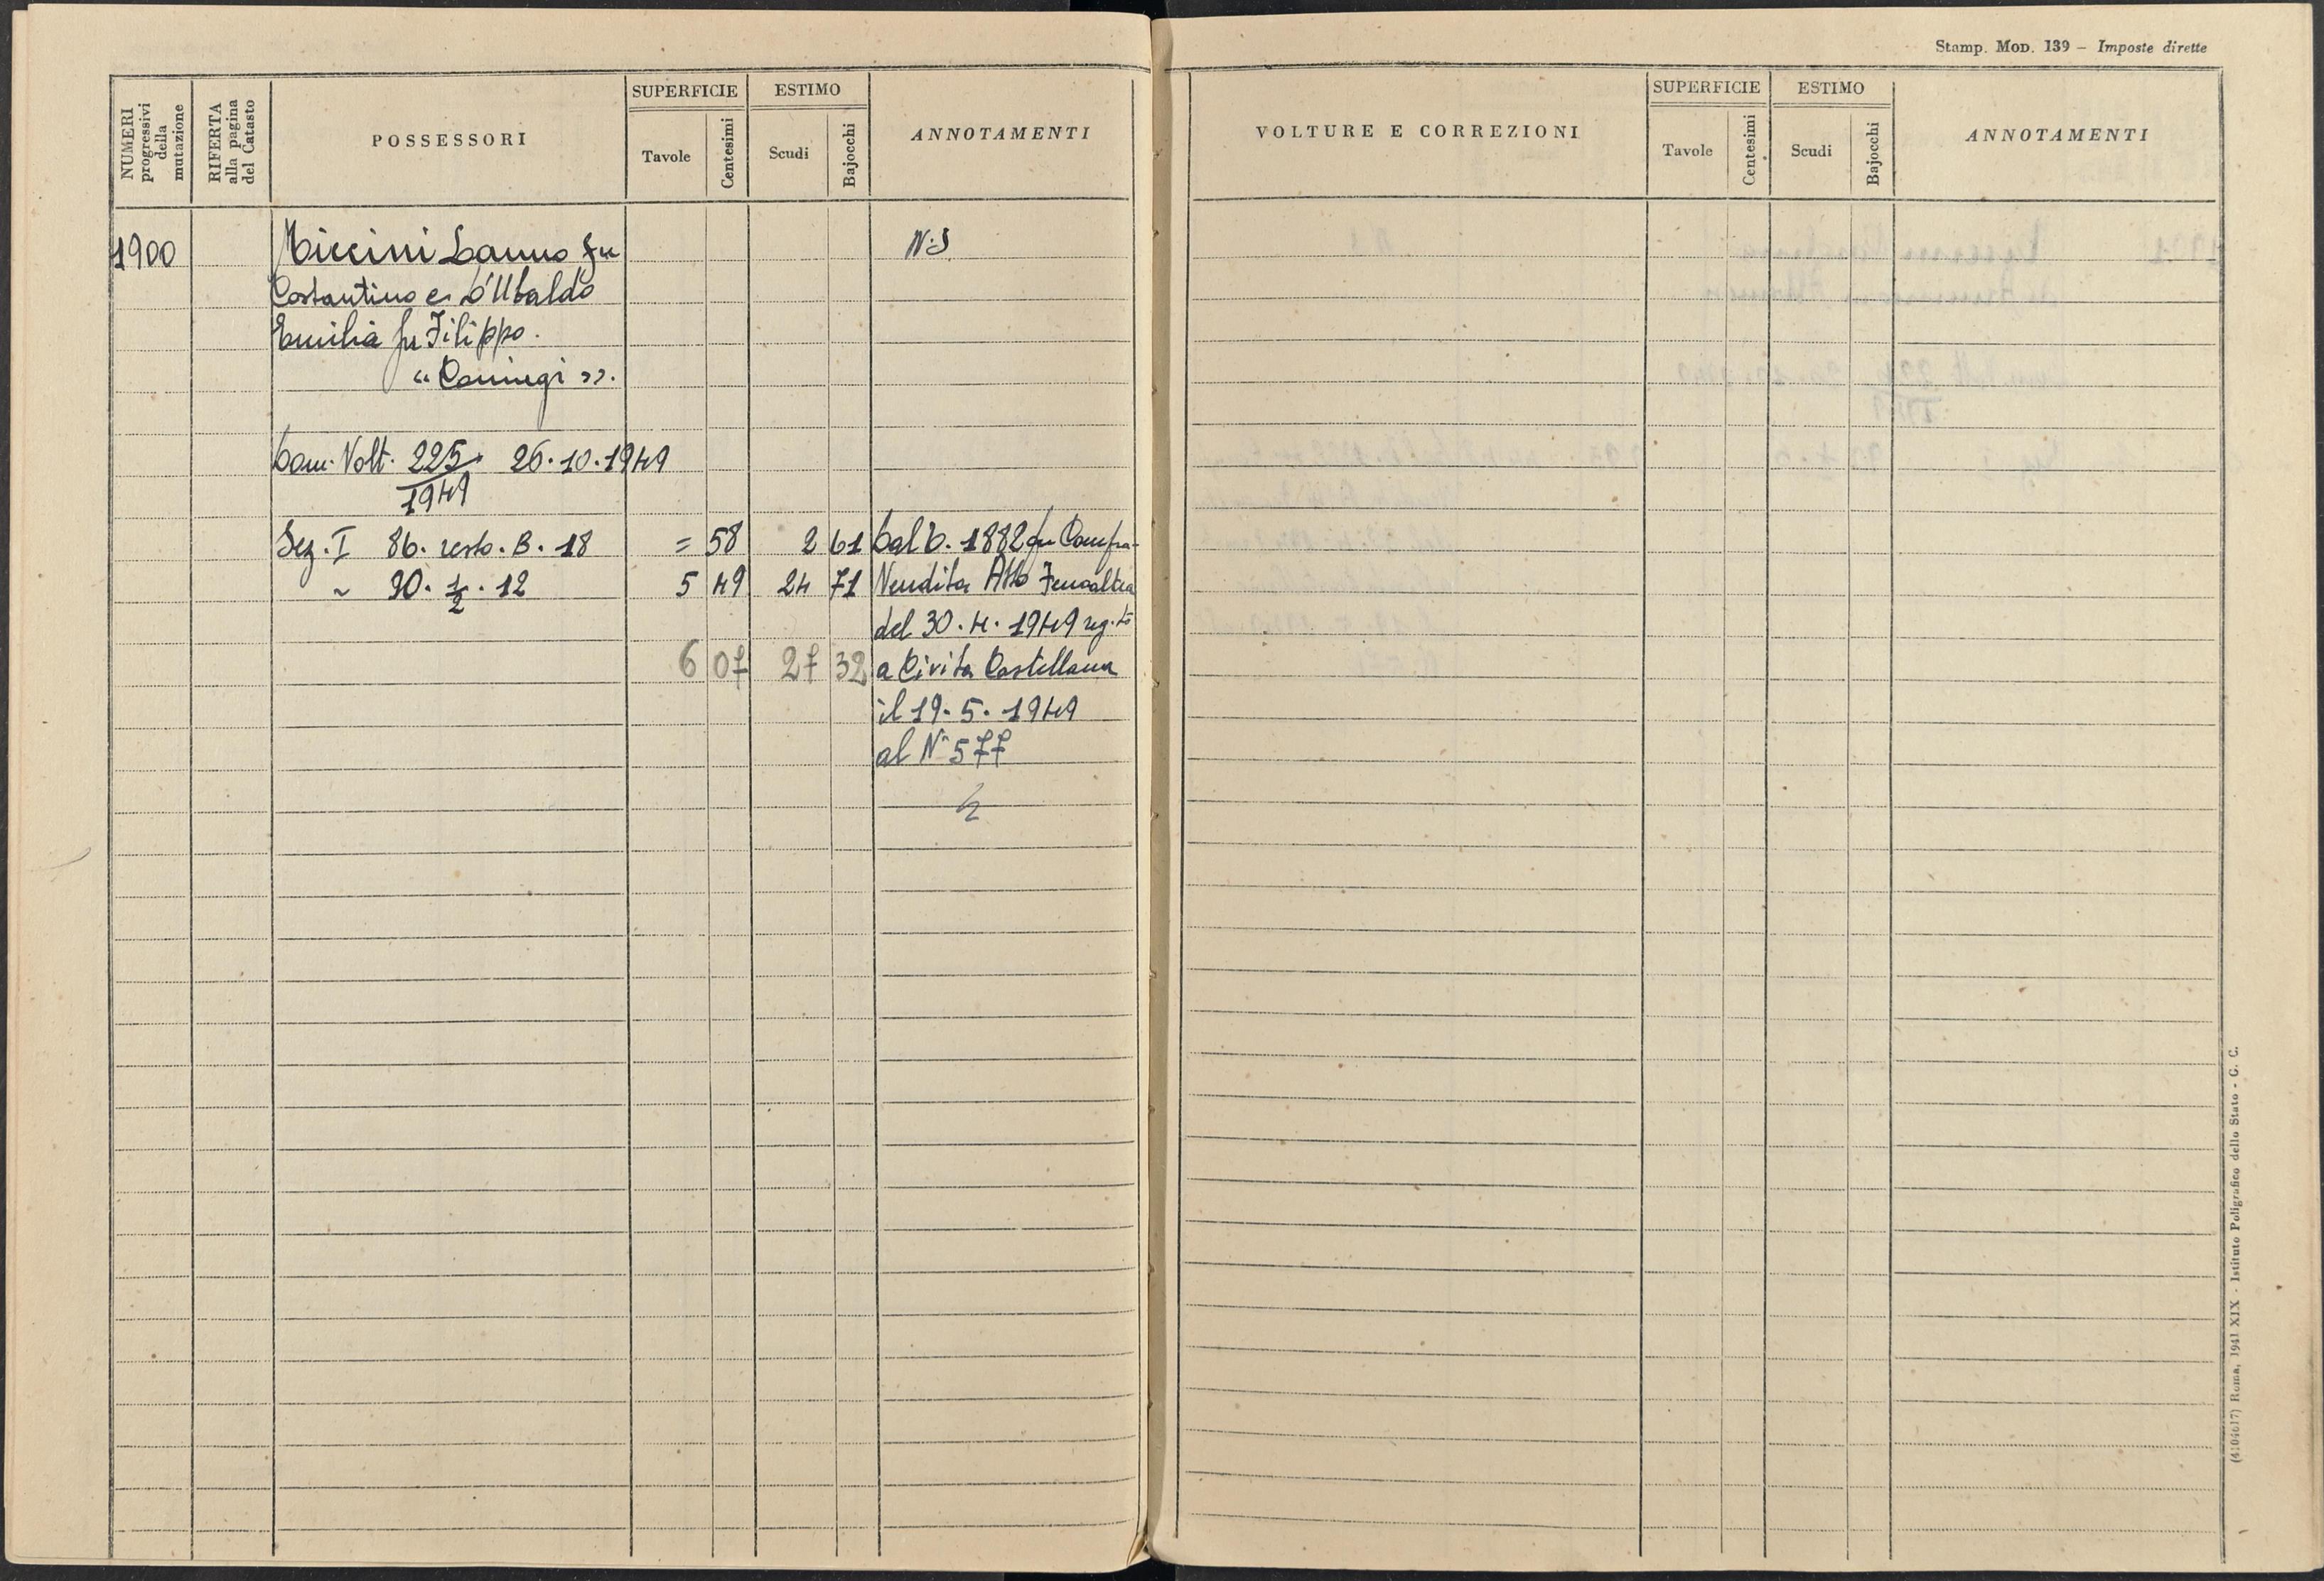 Stamp. MOD. 139 – Imposte dirette
NUMERI progressivi della mutazione
RIFERTA alla pagina del Catasto
POSSESSORI
SUPERFICIE
Tavole
Centesimi
ESTIMO
Scudi
Bajocchi
ANNOTAMENTI
VOLTURE E CORREZIONI
SUPERFICIE
Tavole
Centesimi
ESTIMO
Scudi
Bajocchi
ANNOTAMENTI
1900 fu N.S
Costantino e D'Ubaldo
Emilia fu Filippo.
« Coniugi ».
Com. Volt. 225 26.10.1949
1949
Sez. I 86. resto. B. 18 = 58 2 61 Dal C. 1882 fu Compra-
~ 30. 1/2 . 12 5 49 24 71 Vendita Atto
del 30.4.1949 reg.to
6 07 27 32 a Civita Castellana
il 19.5.1949
al N° 577
(4104617) Roma, 1941 XIX - Istituto Poligrafico dello Stato - G. C.